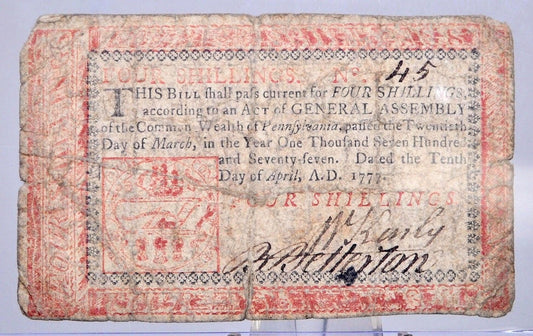 FOUR SHILLINGS. No. 45
THIS BILL ſhall paſs current for FOUR SHILLINGS,
according to an ACT of GENERAL ASSEMBLY
of the Common Wealth of Pennſylvania, paſſed the Twentieth
Day of March, in the Year One Thouſand Seven Hundred
and Seventy-ſeven. Dated the Tenth
Day of April, A.D. 1777.
FOUR SHILLINGS.